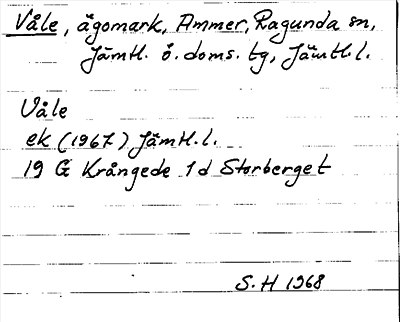 Våle, ägomark, Ammer, Ragunda sn,
Jämtl. ö. doms. tg, Jämtl. l.
Våle
ek (1967) Jämtl. l.
19 G Krångede 1d Storberget
S. H 1968